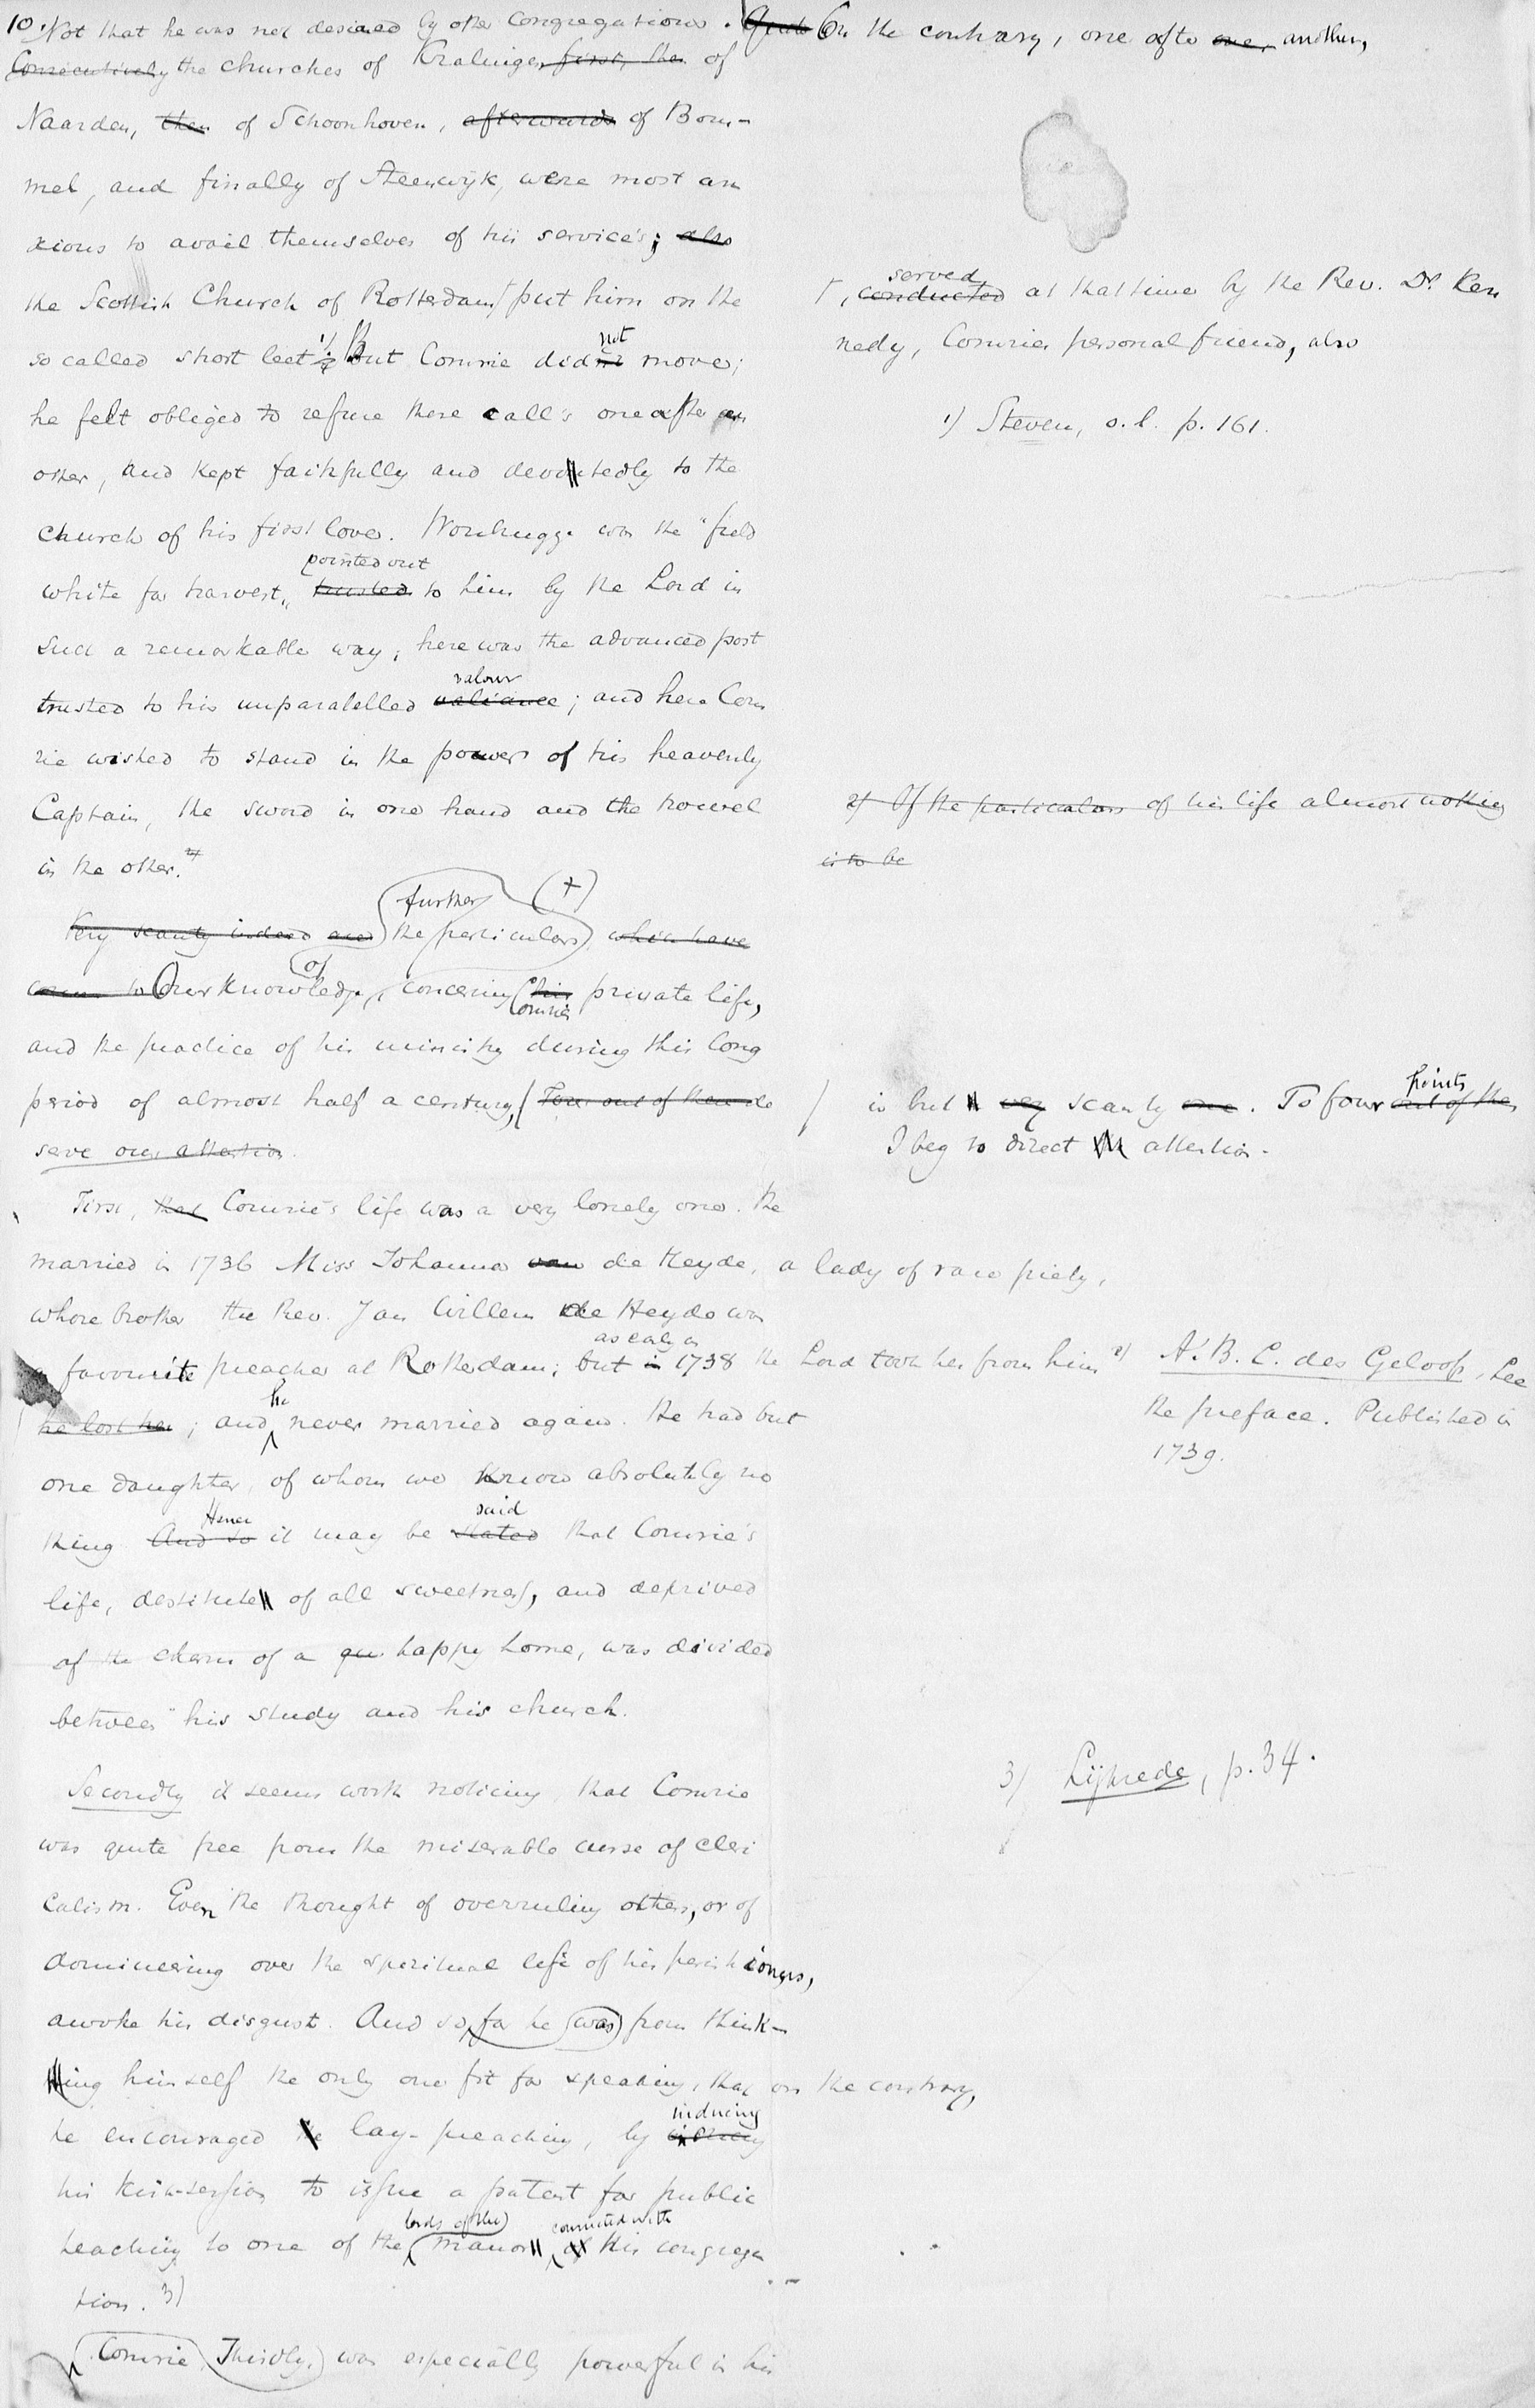 10. Not that he was not desired by other congregations. Quite On the contrary, one after one, another,
Consecutively the churches of Kralingen first, then of
Naarden, then of Schoonhoven, afterwards of Bom-
mel, and finally of Steenwijk, were most an
xious to avail themselves of his service's; also
the Scottish Church of Rotterdam put him on the
served
, conducted at that time by the Rev. Dr. Ken
nedy, Comries personal friend, also
so called short leet 1). But Comrie did not move;
he felt obliged to refuse these call's one after an
1) Steven, o.l. p. 161.
other, and kept faithfully and devotedly to the
church of his first love. Woubrugge was the "field
pointed out
white for harvest" trusted to him by the Lord in
such a remarkable way; here was the advanced post
valour
trusted to his unparalelled valiance; and here Com
rie wished to stand in the power of his heavenly
Captain, the sword in one hand and the trowel
2) Of the particulars of his life almost nothing
is to be
in the other. 2)
further (+)
Very scanty indeed are the particulars which have
of
come to Our knowledge, concering his private life,
Comries
and the practice of his ministry during this long
period of almost half a century, Four out of them de
serve our attention.
points
is but very scanty one. To four out of them
I beg to direct attention.
First, that Comrie's life was a very lonely one. He
married in 1736 Miss Johanna van de Heyde, a lady of rare piety,
whose brother the Rev. Jan Willem de Heyde was
as early as
a favourite preacher at Rotterdam; but in 1738 the Lord took her from him 2)
A.B.C. des Geloofs, See
the preface. Published in
1739.
he
he lost her; and never married again. He had but
one daughter, of whom we know absolutely no
Hence said
thing. And so it may be stated that Comrie's
life, destitute of all sweetness, and deprived
of the charm of a happy home, was divided
between his study and his church.
Secondly it seems worth noticing, that Comrie
3) Lijkrede, p. 34.
was quite free from the miserable curse of cleri
calism. Even the thought of overruling others, or of
domineering over the spiritual life of his parishioners,
awoke his disgust. And so far he was from think-
ing himself the only one fit for speaking, that on the contrary,
inducing
he encouraged the lay-preaching, by
his kirk-session to issue a patent for public
lords of the connected with
teaching to one of the manor of his congrega
tion. 3)
Comrie Thirdly, was especially powerful in his